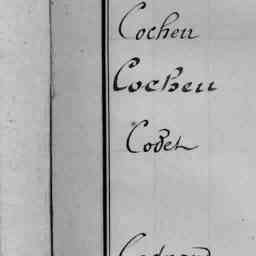 Cochen
Cocheu
Codet